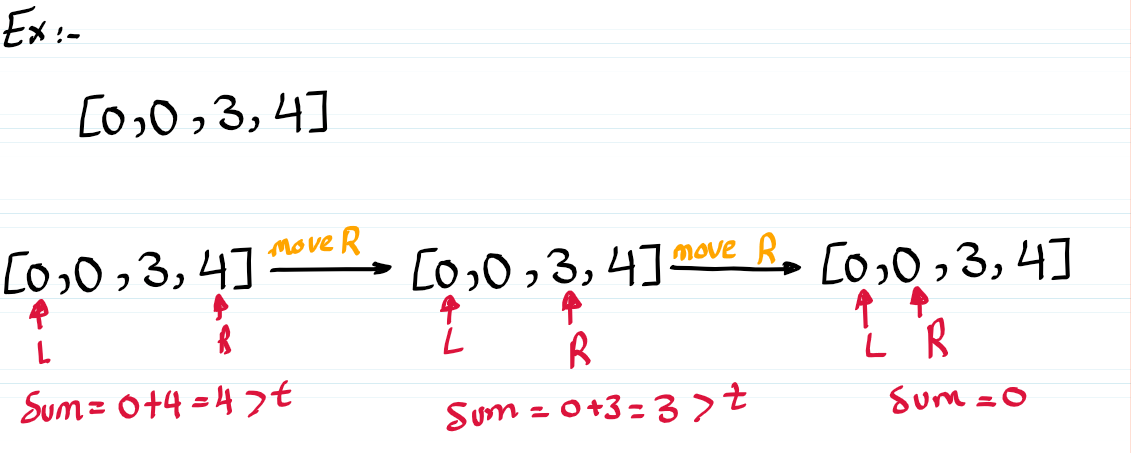 Ex:-
[0,0,3,4]
[0,0,3,4] move R [0,0,3,4] move R [0,0,3,4]
L R L R L R
Sum = 0+4 = 4 > t Sum = 0+3 = 3 > t Sum = 0